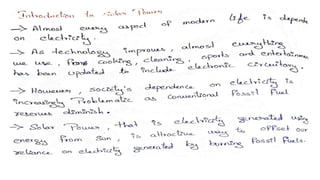 Introduction to solar Power
→ Almost every aspect of modern life is depends
on electricity.
→ As technology improves, almost everything
we use, from cooking, cleaning, sports and entertainment
has been updated to include electronic circuitory.
→ However, society's dependence on electricity is
increasingly Problematic as conventional Fossil Fuel
reserves diminish.
→ Solar Power, that is electricity generated using
energy from sun, is attractive way to offset our
reliance on electricity generated by burning fossil fuels.